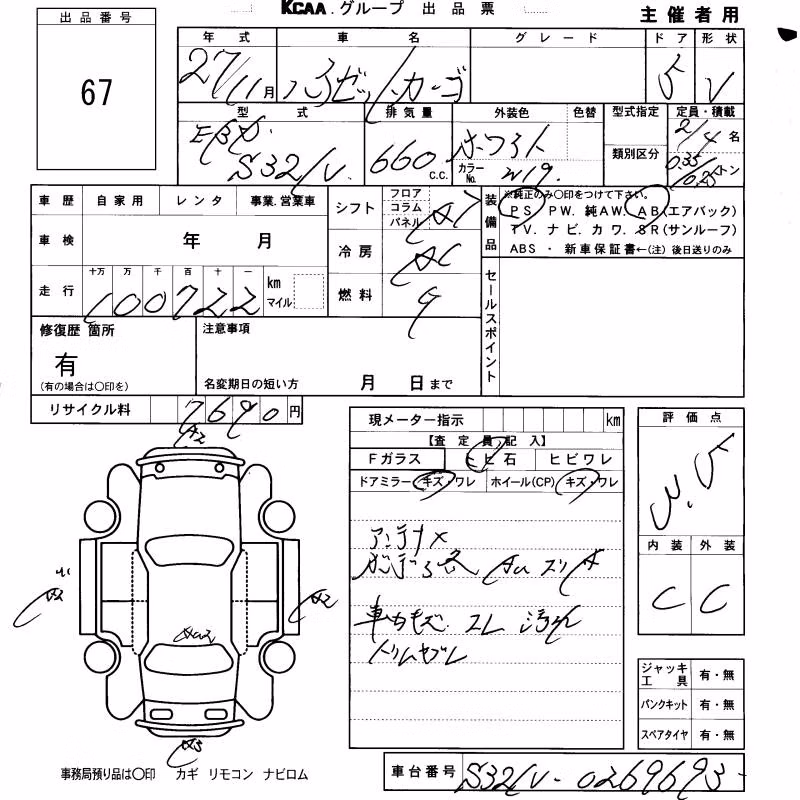 KCAA.グループ 出品票
主催者用
出品番号
67
年式 車名 グレード ドア 形状
27/11月 ハイゼットカーゴ 5 V
型式 排気量 外装色 色替 型式指定 定員・積載
EBD
S321V. 660 c.c. ホワイト カラーNo. W19. 類別区分 2/4名
0.35/0.25トン
車歴 自家用 レンタ 事業.営業車
シフト フロア コラム パネル AT
装備品 ※純正のみ○印をつけて下さい。
PS PW. 純AW. AB(エアバック)
TV. ナビ. カワ. SR(サンルーフ)
ABS ・ 新車保証書←(注) 後日送りのみ
車検 年 月
冷房 AC
セールスポイント
走行 十万 万 千 百 十 一
100722 km マイル
燃料 G
修復歴 箇所
有
(有の場合は○印を)
注意事項
名変期日の短い方 月 日まで
リサイクル料 7690円
現メーター指示 km
【査定員記入】
Fガラス ヒビ石 ヒビワレ
ドアミラー キズ・ワレ ホイール(CP) キズ・ワレ
アンテナ×
車内キズ. コゲ 汚れ
トリムヤブレ
評価点
3.5
内装 外装
C C
A2
A2
A2
AU2
A3
ジャッキ工具 有・無
パンクキット 有・無
スペアタイヤ 有・無
事務局預り品は○印 カギ リモコン ナビロム
車台番号 S321V-0269693-